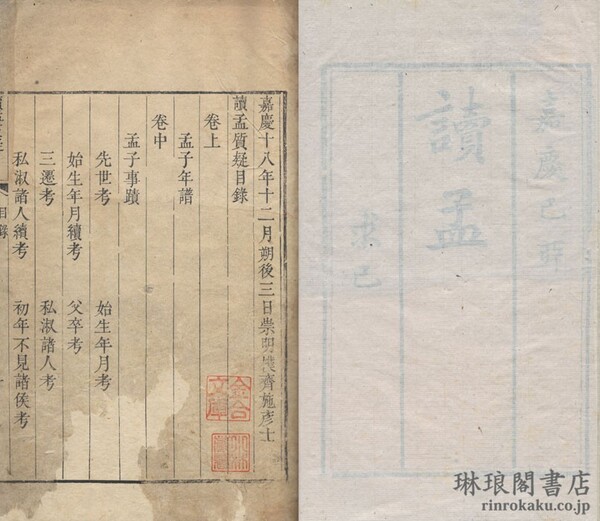 嘉慶己卯
讀孟
求己
嘉慶十八年十二月朔後三日崇明樸齋施彥士
讀孟質疑目錄
卷上
孟子年譜
卷中
孟子事蹟
先世考 始生年月考
始生年月續考 父卒考
三遷考 私淑諸人考
私淑諸人續考 初年不見諸侯考
目錄
金合
文庫
琳琅閣書店
rinrokaku.co.jp